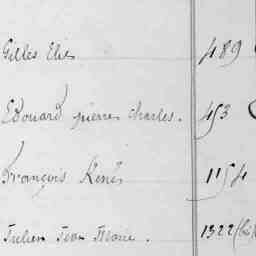 Gilles Elie 489
Edouard pierre charles. 453
François René 1154
Julien Jean Marie. 1322 (bi